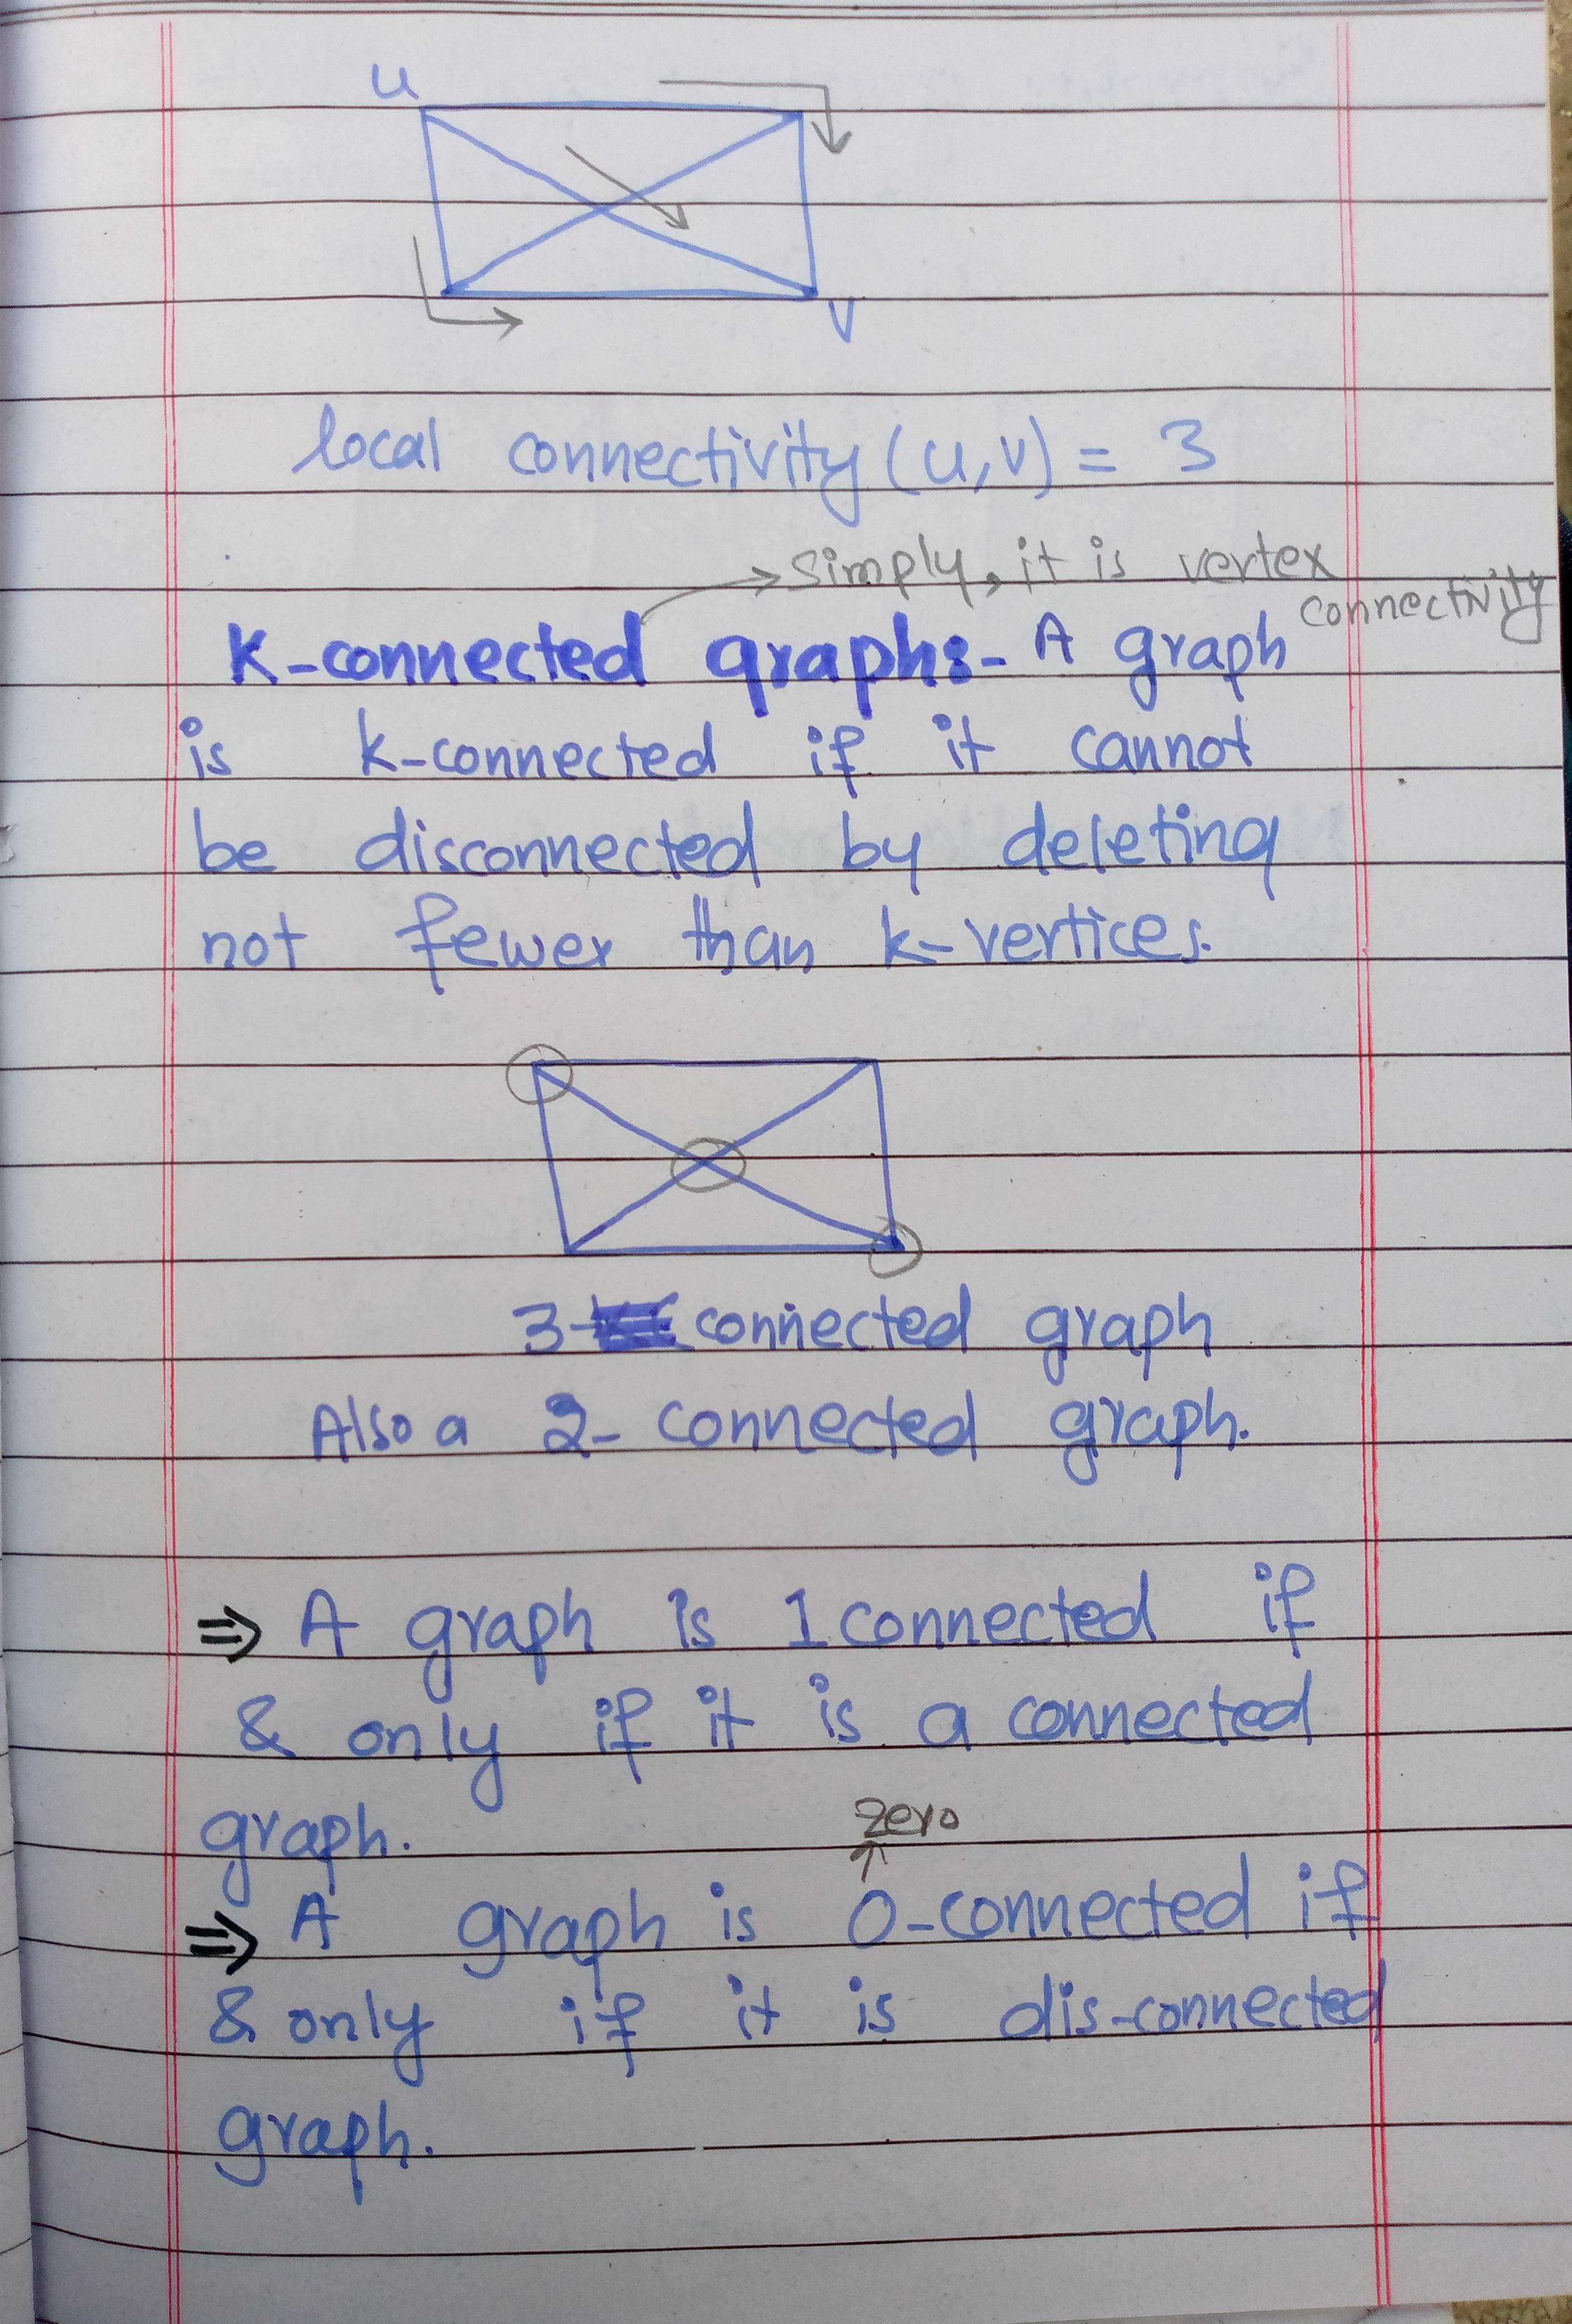 u
v
local connectivity (u,v) = 3
→ simply, it is vertex
connectivity
K-connected graphs- A graph
is k-connected if it cannot
be disconnected by deleting
not fewer than k-vertices.
3- connected graph
Also a 2- connected graph.
⇒ A graph is 1 connected if
& only if it is a connected
graph.
zero
⇒ A graph is 0-connected if
& only if it is dis-connected
graph.